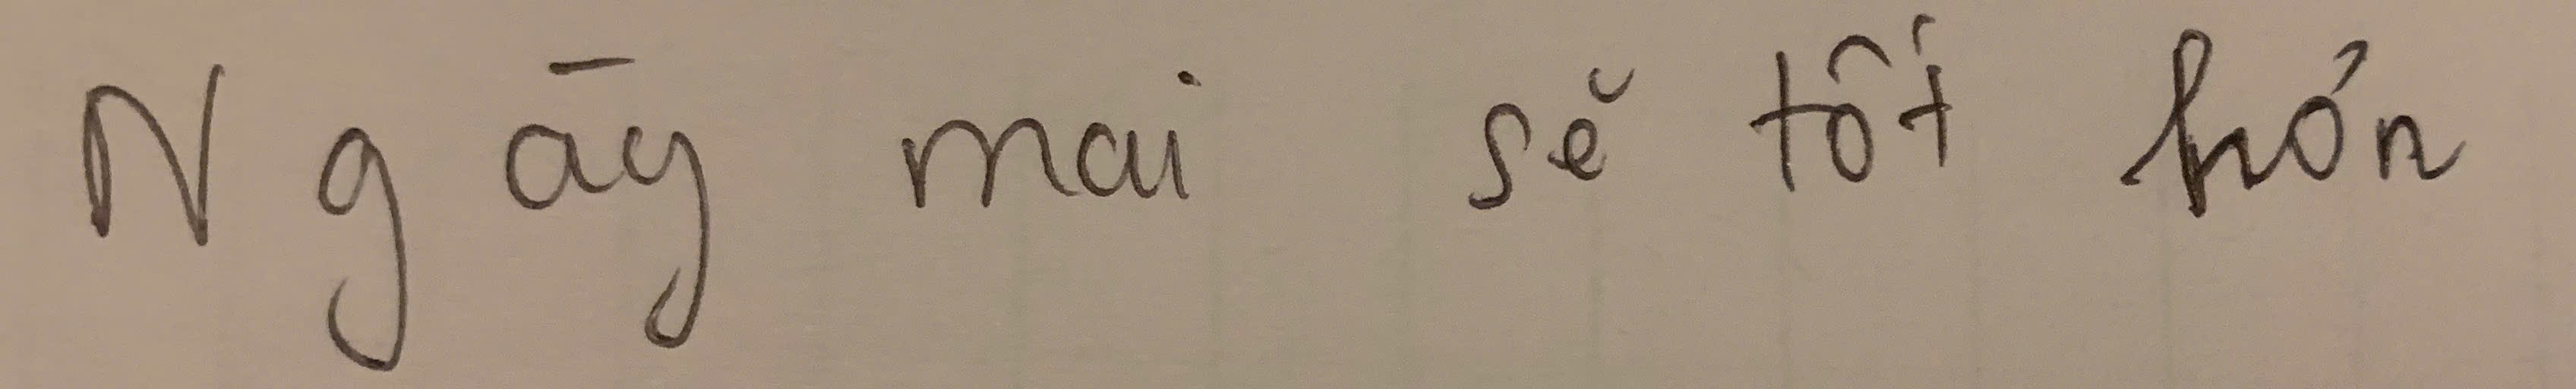 Ngāy mai sẽ tốt hơn